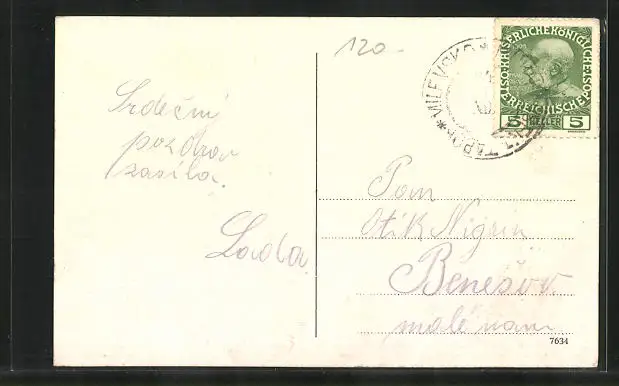 120-
Srdečni
pozdrav
zasíla.
Lada
MILEVSKO
KAISERLICHE KÖNIGLICHE
ÖSTERREICHISCHE POST
5 HELLER 5
Pan
Otik Nigrin
Benešov
malé nam
7634